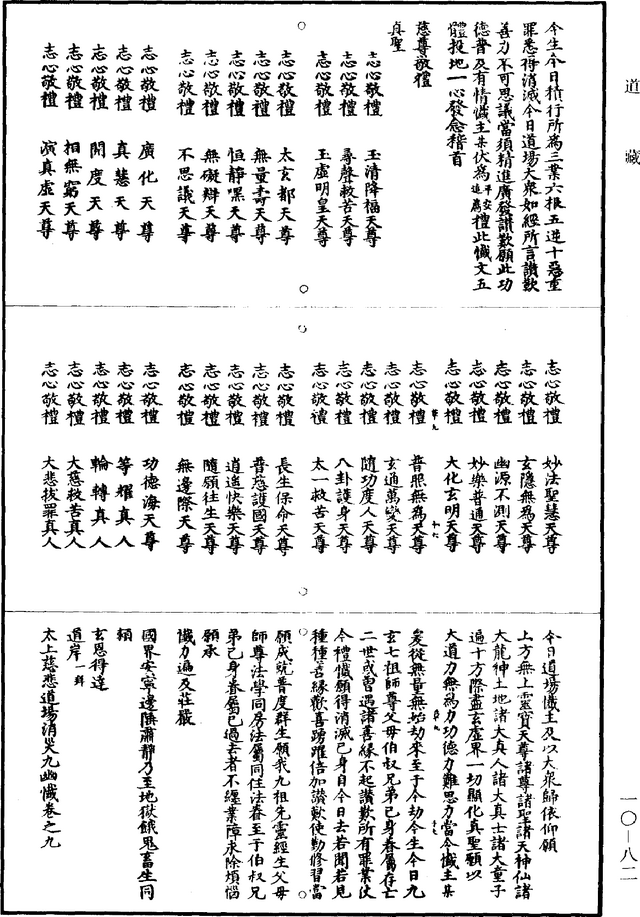 道藏
今生今日相行所為三業六根五逆十惡重
罪悉得消滅今日道場大衆如經所言讚歎
善力不可思議當須精進廣發讚歎願此功
德普及有情懺主某伏為平安追為禮此懺文五
體投地一心發念稽首
慈尊敬禮
真聖
志心敬禮 玉清降福天尊
志心敬禮 尋聲救苦天尊
志心敬禮 玉虛明皇天尊
志心敬禮 太玄都天尊
志心敬禮 無量壽天尊
志心敬禮 恒靜嘿天尊
志心敬禮 無礙辯天尊
志心敬禮 不思議天尊
志心敬禮 廣化天尊
志心敬禮 真慧天尊
志心敬禮 開度天尊
志心敬禮 相無窮天尊
志心敬禮 演真虛天尊
志心敬禮 妙法聖慧天尊
志心敬禮 玄隱無為天尊
志心敬禮 幽源不測天尊
志心敬禮 妙樂普通天尊
志心敬禮 大化玄明天尊
志心敬禮 普照無為天尊
志心敬禮 玄通萬變天尊
志心敬禮 隨功度人天尊
志心敬禮 八卦護身天尊
志心敬禮 太一救苦天尊
志心敬禮 長生保命天尊
志心敬禮 普慈護國天尊
志心敬禮 逍遙快樂天尊
志心敬禮 隨願往生天尊
志心敬禮 無邊際天尊
志心敬禮 功德海天尊
志心敬禮 等耀真人
志心敬禮 輪轉真人
志心敬禮 大慈救苦真人
志心敬禮 大悲拔罪真人
今日道場懺主及以大衆歸依仰願
上方無上靈寶天尊諸尊諸聖諸天神仙諸
大龍神土地諸大真人諸大真士諸大童子
遍十方際盡玄虛界一切顯化真聖願以
大道力無為力功德力難思力當令懺主某
爰從無量無始劫來至于今劫今生今日九
玄七祖師尊父母伯叔兄弟己身眷屬存亡
二世或曾遇諸善緣不起讚歎所有罪業仗
今禮懺願得消滅己身自今日去若聞若見
種種善緣歡喜踴躍倍加讚歎使勤修習當
願成就普度群生願我九祖先靈經生父母
師尊法學同房法屬同住法眷至于伯叔兄
弟己身眷屬已過去者不經業障求除煩惱
願承
懺力遍及莊嚴
國界安寧邊隅肅靜乃至地獄餓鬼畜生同
賴
玄恩得達
道岸一拜
太上慈悲道場消災九幽懺卷之九
一〇—八二